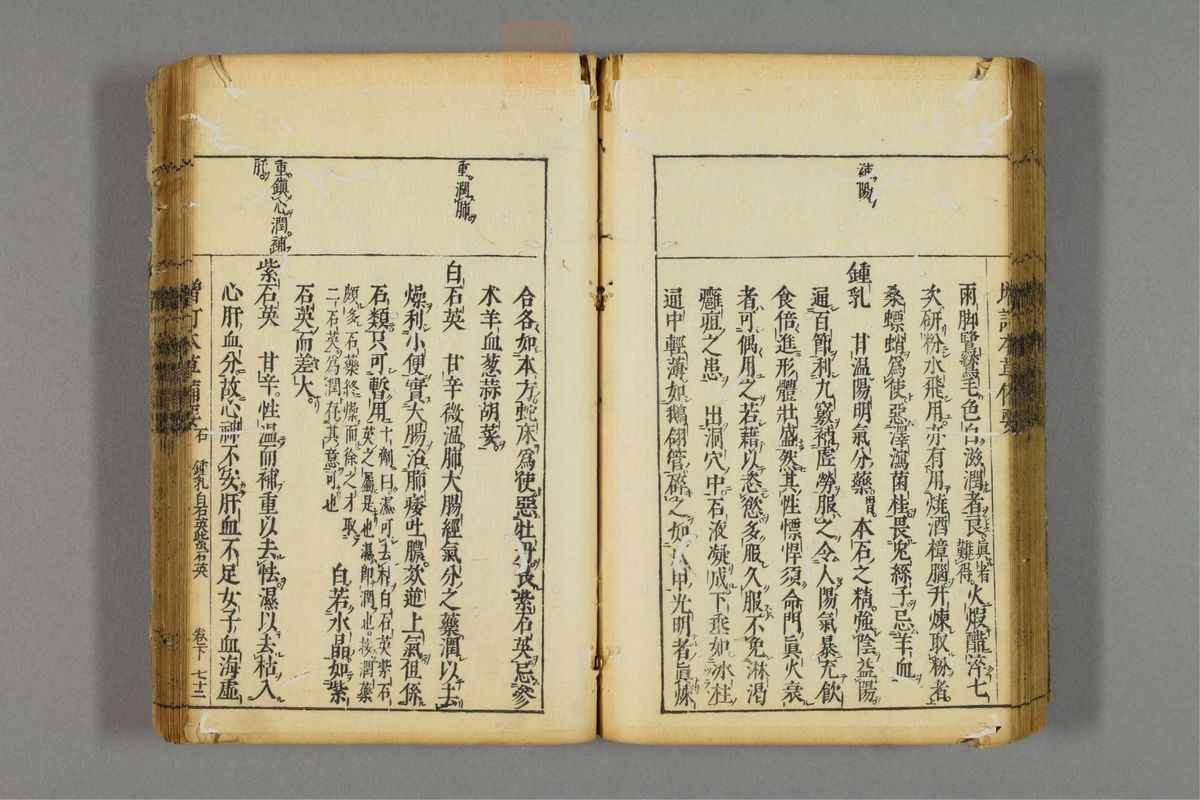 兩脚鷺鷥毛色白滋潤者良真者難得火煅醋淬七
次研粉水飛用亦有用燒酒樟腦升煉取粉者
桑螵蛸爲使惡澤瀉菌桂畏兔絲子忌羊血
補陽
鍾乳 甘温陽明氣分藥胃本石之精強陰益陽
通百節利九竅補虛勞服之令人陽氣暴充飲
食倍進形體壯盛然其性慓悍須命門真火衰
者可偶用之若藉以恣慾多服久服不免淋渴
癰疽之患 出洞穴中石液凝成下垂如冰柱
通中輕薄如鵝翎管碎之如爪甲光明者真煉
合各如本方蛇床爲使惡牡丹畏紫石英忌參
术羊血葱蒜胡荽
重潤肺
白石英 甘辛微温肺大腸經氣分之藥潤以去
燥利小便實大腸治肺痿吐膿欬逆上氣但係
石類只可暫用十劑曰濕可去枯白石英紫石
英之屬是也濕卽潤也按潤藥
頗多石藥終燥而徐之才取
二石英爲潤存其意可也 白若水晶如紫
石英而差大
重鎮心潤補
肝
紫石英 甘辛性温而補重以去怯濕以去枯入
心肝血分故心神不安肝血不足女子血海虛
增訂本草備要 石 鍾乳白石英紫石英 卷下 七十二
zysj.com.cn